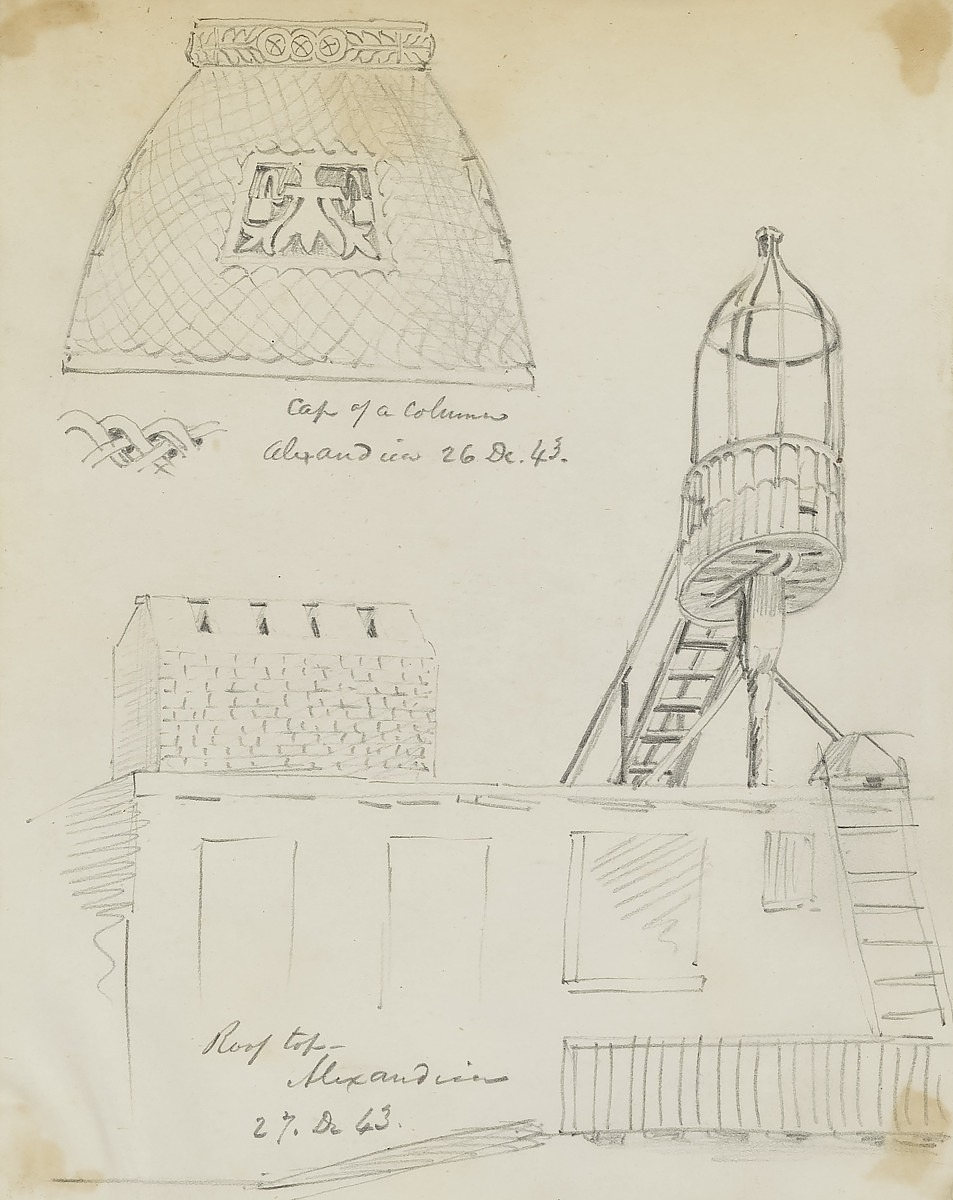 Cap of a column
Alexandria 26 De. 43.
Roof top—
Alexandria
27. De 43.